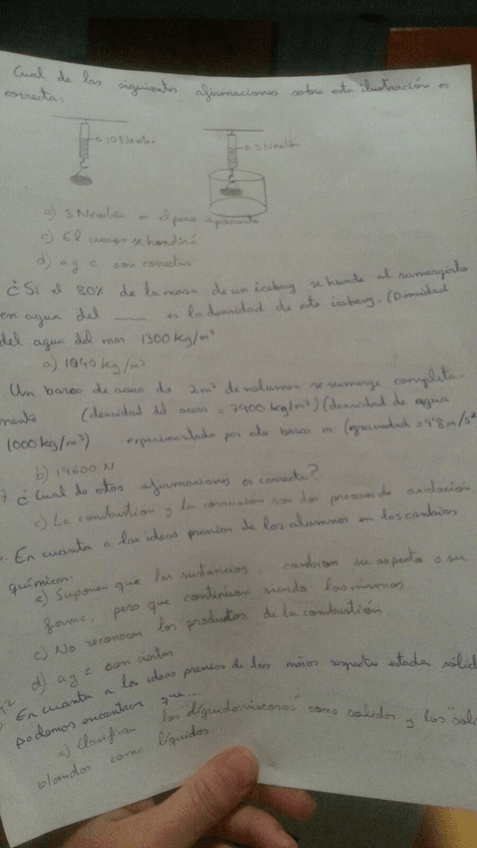 Cual de las siguientes afirmaciones sobre esta ilustración es
correcta:
10 Newton
3 Newton
a) 3 Newton = el peso aparente
c) El cuerpo se hundirá
d) a y c son correctas
¿Si el 80% de la masa de un iceberg se hunde al sumergirlo
en agua del ___ es la densidad de este iceberg. (Densidad
del agua del mar 1300 kg/m³
a) 1040 kg/m³
Un barco de acero de 2m³ de volumen se sumerge completa-
mente (densidad del acero = 7900 kg/m³) (densidad de agua
1000 kg/m³) experimentado por este barco es (gravedad = 9'8 m/s²
b) 19600 N
7. ¿Cual de estas afirmaciones es correcta?
c) La combustión y la corrosión son dos procesos de oxidación
En cuanto a las ideas previas de los alumnos en los cambios
químicos:
a) Suponen que las sustancias cambian su aspecto o su
forma, pero que continúan siendo las mismas
c) No reconocen los productos de la combustión
d) a y c son ciertas
En cuanto a las ideas previas de los niños respecto estado sólid
podemos encontrar que...
Clasifican los "líquidos viscosos" como solidos y los "sol
blandos como líquidos